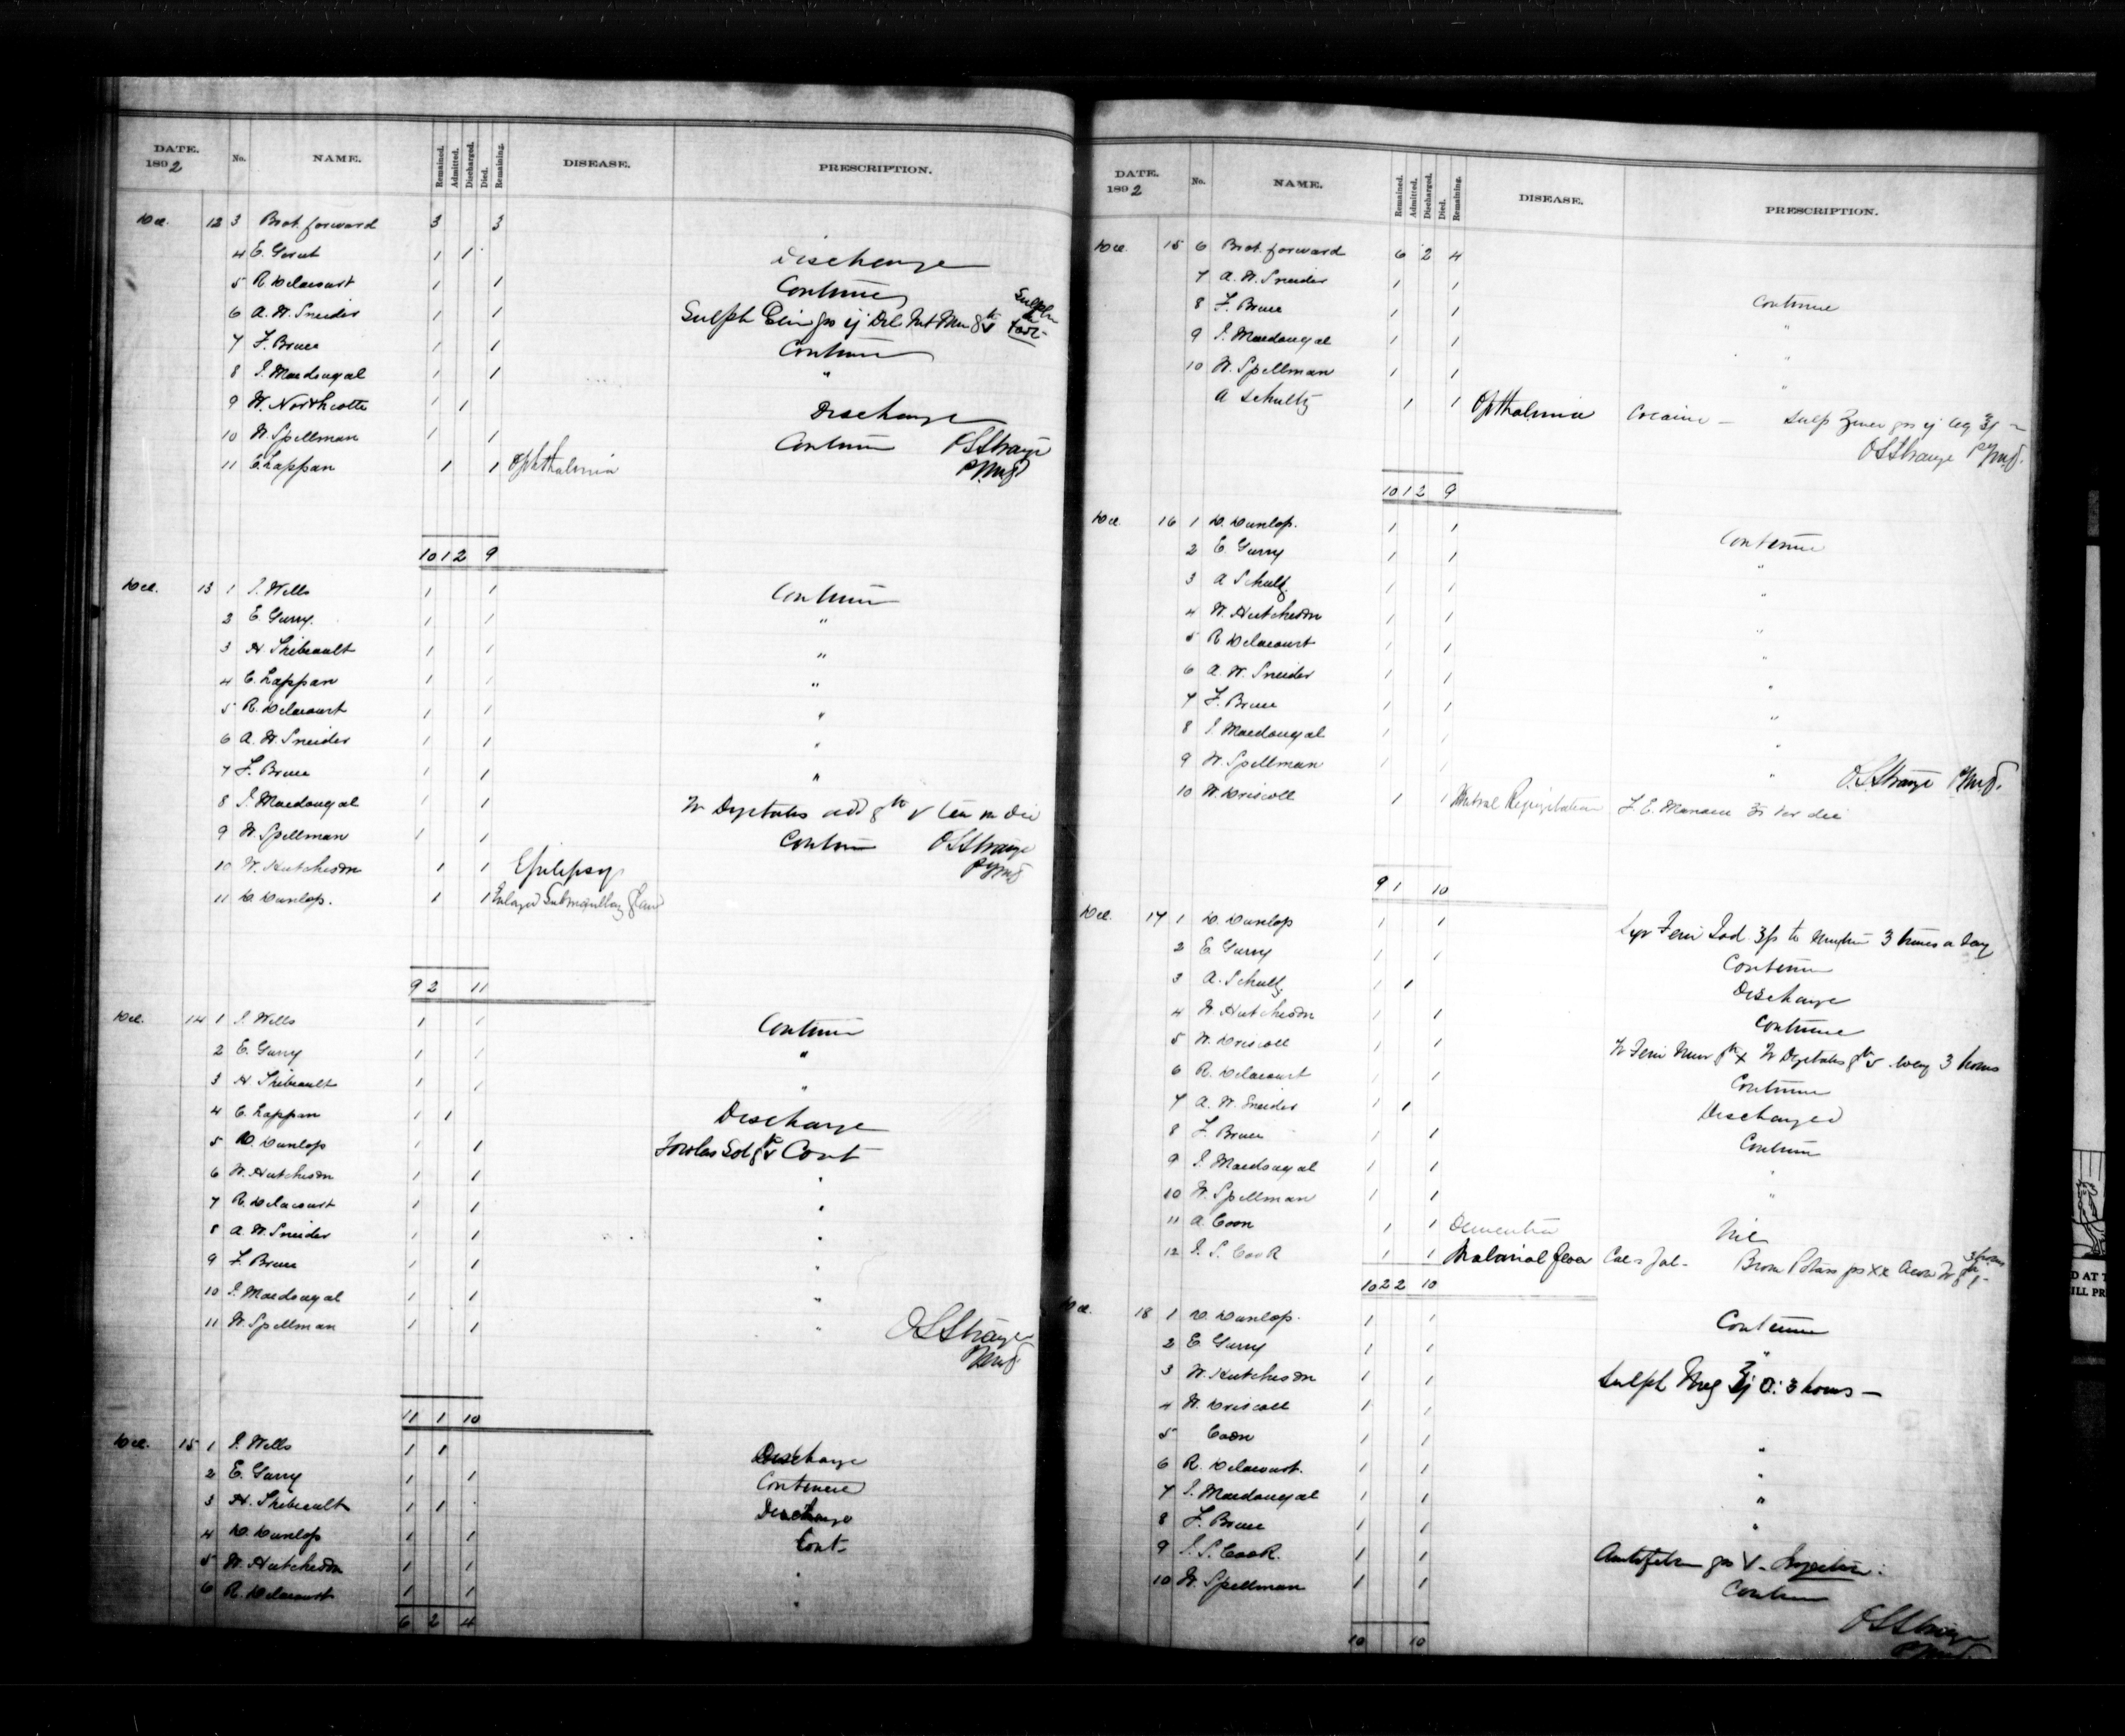 DATE. 1892 No. NAME. Remained. Admitted. Discharged. Died. Remaining. DISEASE. PRESCRIPTION.
Dec. 12 3 Brot. forward 3 3
4 E. Gerut 1 1 Discharge
5 R Delacourt 1 1 Continue
6 A. W. Sneider 1 1 Sulph
7 F. Bruce 1 1 Continue
8 J. Macdougal 1 1 "
9 W. Northcotte 1 1 Discharge
10 W. Spellman 1 1 Continue OSStrange
11 C. Lappan 1 1 Ophthalmia
10 1 2 9
Dec. 13 1 J. Wells 1 1 Continue
2 E. Garry. 1 1 "
3 H. Thibeault 1 1 "
4 C. Lappan 1 1 "
5 R. Delacourt 1 1 "
6 A. W. Sneider 1 1 "
7 F. Bruce 1 1 "
8 J. Macdougal 1 1 Tr Digitalis add
9 W. Spellman 1 1 Continue OSStrange
10 W. Hutcheson 1 1 Epilepsy
11 D. Dunlop. 1 1 Enlarged Submaxillary Gland
9 2 11
Dec. 14 1 J. Wells 1 1 Continue
2 E. Garry 1 1 "
3 H. Thibeault 1 1 "
4 C. Lappan 1 1 Discharge
5 D. Dunlop 1 1 Fowlers Sol Cont
6 W. Hutcheson 1 1 "
7 R. Delacourt 1 1 "
8 A. W. Sneider 1 1 "
9 F. Bruce 1 1 "
10 J. Macdougal 1 1 "
11 W. Spellman 1 1 " OSStrange
11 1 10
Dec. 15 1 J. Wells 1 1 Discharge
2 E. Garry 1 1 Continue
3 H. Thibeault 1 1 Discharge
4 D. Dunlop 1 1 Cont.
5 W. Hutcheson 1 1 "
6 R. Delacourt 1 1 "
6 2 4
DATE. 1892 No. NAME. Remained. Admitted. Discharged. Died. Remaining. DISEASE. PRESCRIPTION.
Dec. 15 6 Brot. forward 6 2 4
7 A. W. Sneider 1 1 Continue
8 F. Bruce 1 1 "
9 J. Macdougal 1 1 "
10 W. Spellman 1 1 "
A Schultz 1 1 Opthalmia Cocaine -
OSStrange
10 1 2 9
Dec. 16 1 D. Dunlop. 1 1 Continue
2 E. Garry 1 1 "
3 A Schultz. 1 1 "
4 W. Hutcheson 1 1 "
5 R Delacourt 1 1 "
6 A. W. Sneider 1 1 "
7 F. Bruce 1 1 "
8 J. Macdougal 1 1 "
9 W. Spellman 1 1 " OSStrange
10 W. Driscoll 1 1 Mitral Regurgitation
9 1 10
Dec. 17 1 D. Dunlop 1 1 Syr Ferri Iod 3 times a day
2 E. Garry 1 1 Continue
3 A. Schultz. 1 1 Discharge
4 W. Hutcheson 1 1 Continue
5 W. Driscoll 1 1 Tr Ferri Mur Tr Digitalis every 3 hours
6 R. Delacourt 1 1 Continue
7 A. W. Sneider 1 1 Discharged
8 F. Bruce 1 1 Continue
9 J. Macdougal 1 1 "
10 W. Spellman 1 1 "
11 A. Coon 1 1 Dementia Nil
12 J. S. Cook 1 1 Malarial fever Cal & Jal - Brom Potass grs xx
10 2 2 10
Dec. 18 1 D. Dunlop. 1 1 Continue
2 E. Garry 1 1 "
3 W. Hutcheson 1 1 Sulph Mag 3 hours -
4 W. Driscoll 1 1
5 Coon 1 1 "
6 R. Delacourt. 1 1 "
7 J. Macdougal 1 1 "
8 F. Bruce 1 1 "
9 J. S. Cook. 1 1
10 W. Spellman 1 1 Continue
OSStrange
10 10